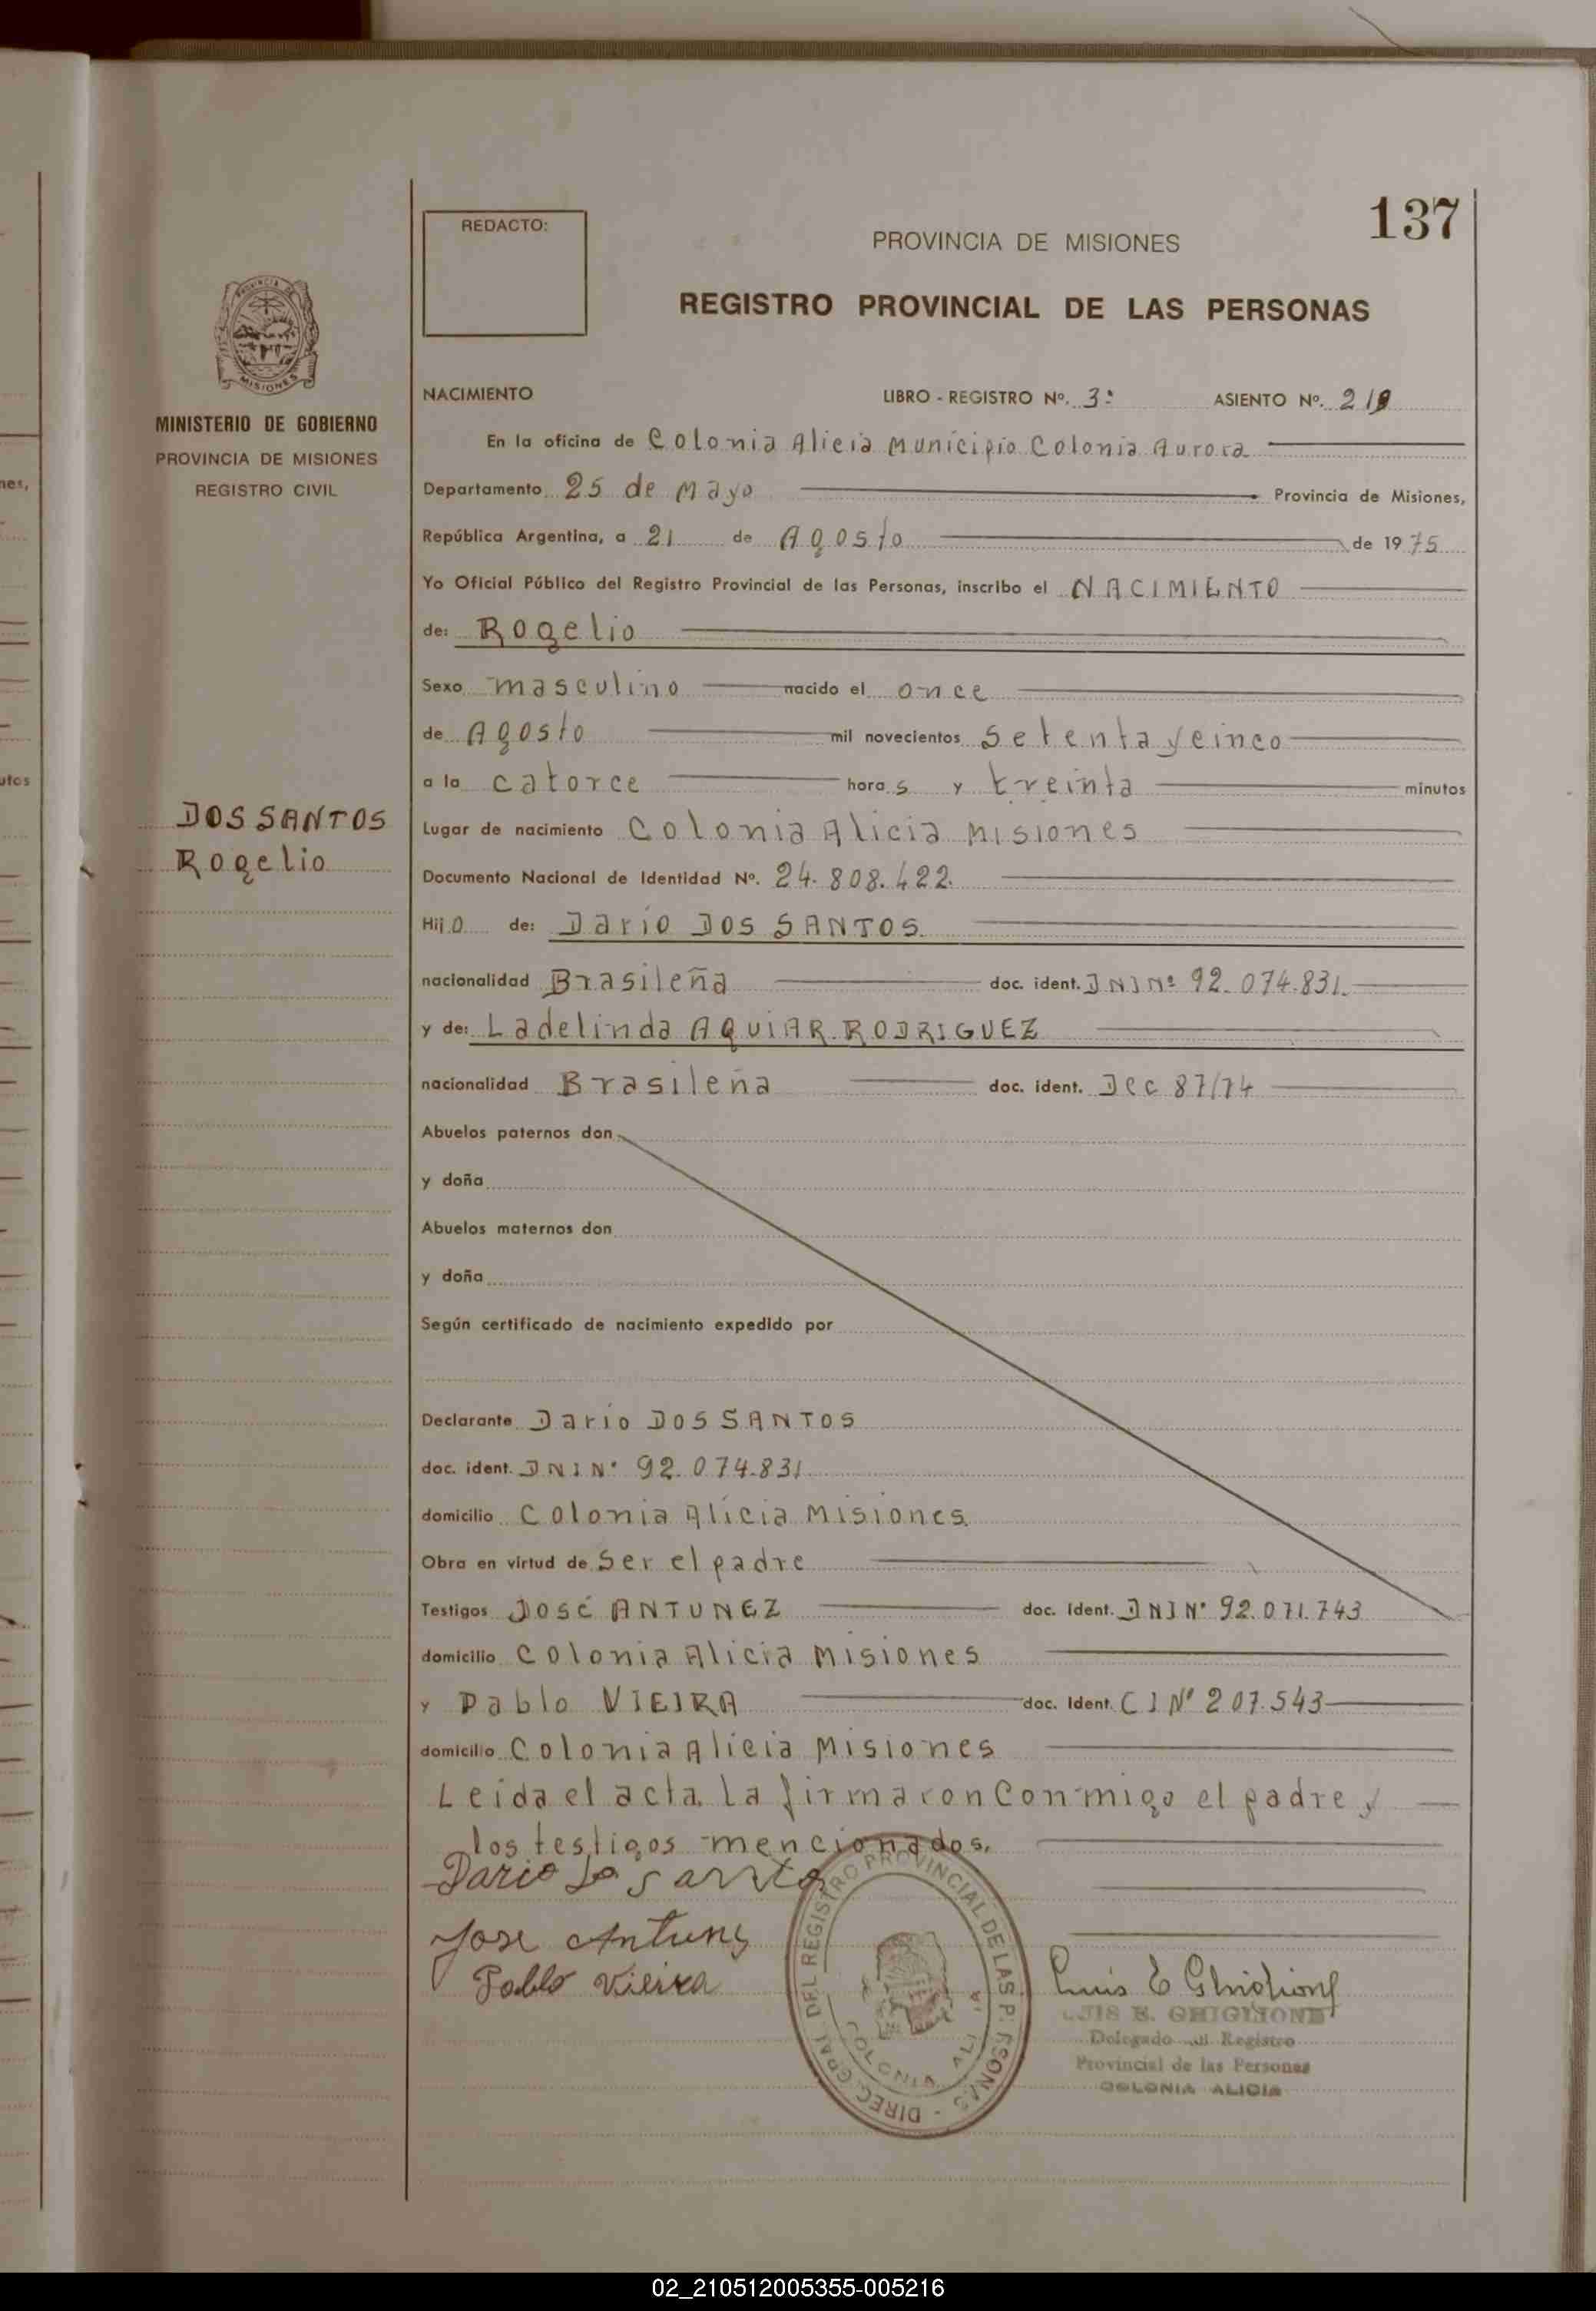 137
REDACTO:
PROVINCIA DE MISIONES
REGISTRO PROVINCIAL DE LAS PERSONAS
MINISTERIO DE GOBIERNO
PROVINCIA DE MISIONES
REGISTRO CIVIL
DOS SANTOS
Rogelio
NACIMIENTO LIBRO - REGISTRO Nº. 3º ASIENTO Nº.
En la oficina de Colonia Alicia Municipio Colonia Aurora
Departamento 25 de Mayo Provincia de Misiones,
República Argentina, a 21 de Agosto de 1975
Yo Oficial Público del Registro Provincial de las Personas, inscribo el NACIMIENTO
de: Rogelio
Sexo masculino nacido el once
de Agosto mil novecientos setenta y cinco
a la catorce horas y treinta minutos
Lugar de nacimiento Colonia Alicia Misiones
Documento Nacional de Identidad Nº. 24.808.422.
Hijo de: Dario DOS SANTOS.
nacionalidad Brasileña doc. ident. DNI Nº 92.074.831.
y de: Ladelinda AQUIAR RODRIGUEZ
nacionalidad Brasileña doc. ident. Dec 87/74
Abuelos paternos don
y doña
Abuelos maternos don
y doña
Según certificado de nacimiento expedido por
Declarante Dario DOS SANTOS
doc. ident. DNI Nº 92.074.831.
domicilio Colonia Alicia Misiones.
Obra en virtud de Ser el padre
Testigos José ANTUNEZ doc. ident. DNI Nº 92.071.743
domicilio Colonia Alicia Misiones
y Pablo VIEIRA doc. ident. CI Nº 207.543
domicilio Colonia Alicia Misiones
Leida el acta, la firmaron conmigo el padre y
los testigos mencionados.
Dario Do Santos
Jose Antunes
Pablo Vieira
DIREC. GRAL. DEL REGISTRO PROVINCIAL DE LAS PERSONAS -
COLONIA ALICIA
Luis E Ghiglione
LUIS E. GHIGLIONE
Delegado del Registro
Provincial de las Personas
COLONIA ALICIA
02_210512005355-005216